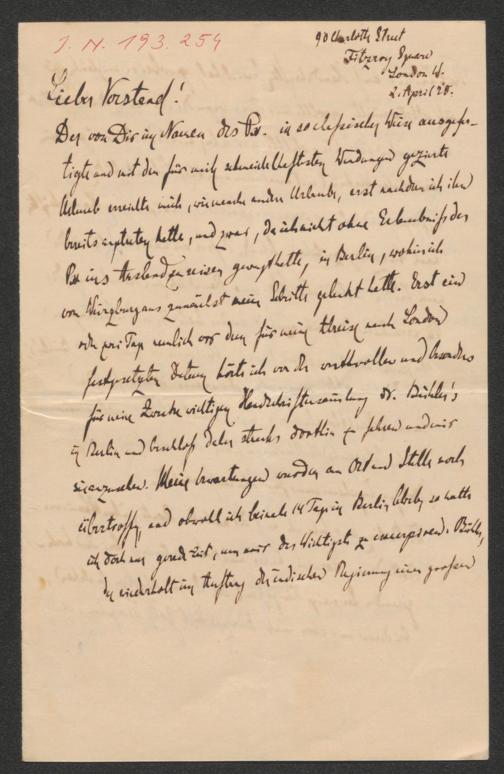 J. N. 193.254
90 Charlotte Street
Fitzroy Square
London W.
2. April 28.
Lieber Vorstand!
Der von Dir im Namen des Px. in so classischer Weise ausgefer-
tigte und mit den für mich schmeichelhaftesten Wendungen gezierte
Urlaub erreichte mich, wie manche andere Urlaube, erst nachdem ich ihn
bereits angetreten hatte, und zwar, da ich nicht ohne Erlaubniß des
Px ins Ausland zu reisen gewagt hatte, in Berlin, wohin ich
von Würzburg aus zunächst meine Schritte gelenkt hatte. Erst ein
oder zwei Tage nemlich vor dem für meine Abreise nach London
festgesetzten Datum hörte ich von der werthvollen und besonders
für meine Zwecke wichtigen Handschriftensammlung Dr. Bühler's
in Berlin und beschloß daher stracks dorthin zu fahren und mir
sie anzusehen. Meine Erwartungen wurden an Ort und Stelle noch
übertroffen, und obwohl ich beinahe 14 Tage in Berlin blieb, so hatte
ich doch nur gerade Zeit, um mir das Wichtigste zu excerpiren. Bühler,
der wiederholt im Auftrag der indischen Regierung einen großen